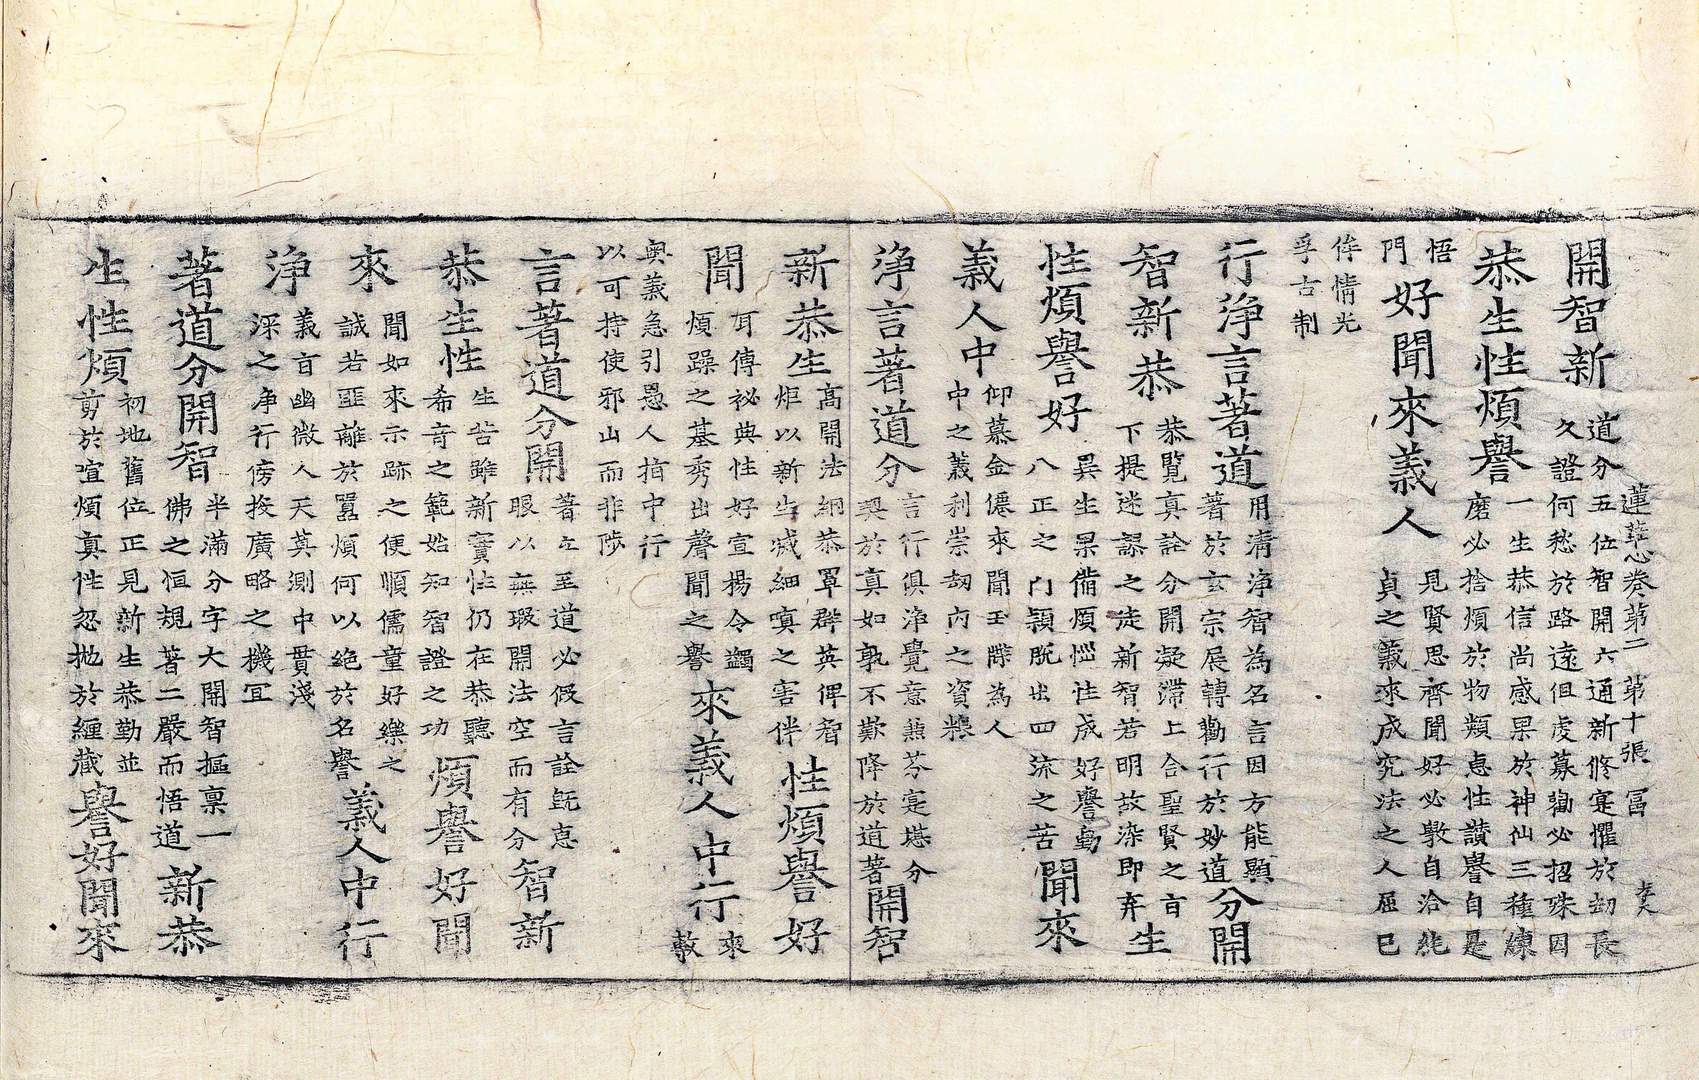 蓮華心卷第二 第十張 冨
開智新 道分五位智開六通新修寔懼於劫長
久證何愁於路遠但虔募勸必招殊因
恭生性煩譽 一生恭信尚感果於神仙三種練
磨必捨煩於物類惠性讚譽自是
悟
門 好聞來義人 見賢思齊聞好必敦自洽純
貞之義來成究法之人屈己
倖情光
孚古制
行淨言著道 用清淨智為名言因方能顯
著於玄宗展轉勸行於妙道 分開
智新恭 恭覽真詮分開凝滯上合聖賢之旨
下提迷謬之徒新智若明故染即弃 生
性煩譽好 異生果備煩惱性成好譽勤
八正之門頴脫出四流之苦 聞來
義人中 仰慕金僊來聞玉牒為人
中之義利崇劫內之資粮
淨言著道分 言行俱淨覺意無芬寔堪分
契於真如孰不歎降於道著 開智
新恭生 高開法網恭罩群英俾智
炬以新生滅細嗔之害伴 性煩譽好
聞 耳傳祕典性好宣楊令蠲
煩躁之基秀出聲聞之譽 來義人中行 來
敷
奥義急引愚人指中行
以可持使邪山而非陟
言著道分開 著之至道必假言詮既惠
眼以無瑕開法空而有分 智新
恭生性 生苦雖新實性仍在恭聽
希奇之範始知智證之功 煩譽好聞
來 聞如來示跡之便順儒童好樂之
誠若匪離於嚣煩何以絕於名譽 義人中行
淨 義旨幽微人天莫測中貫淺
深之淨行傍投廣略之機冝
著道分開智 半滿分字大開智摳禀一
佛之恒規著二嚴而悟道 新恭
生性煩 初地舊位正見新生恭勤並
剪於喧煩真性忽拋於纏蔵 譽好聞來